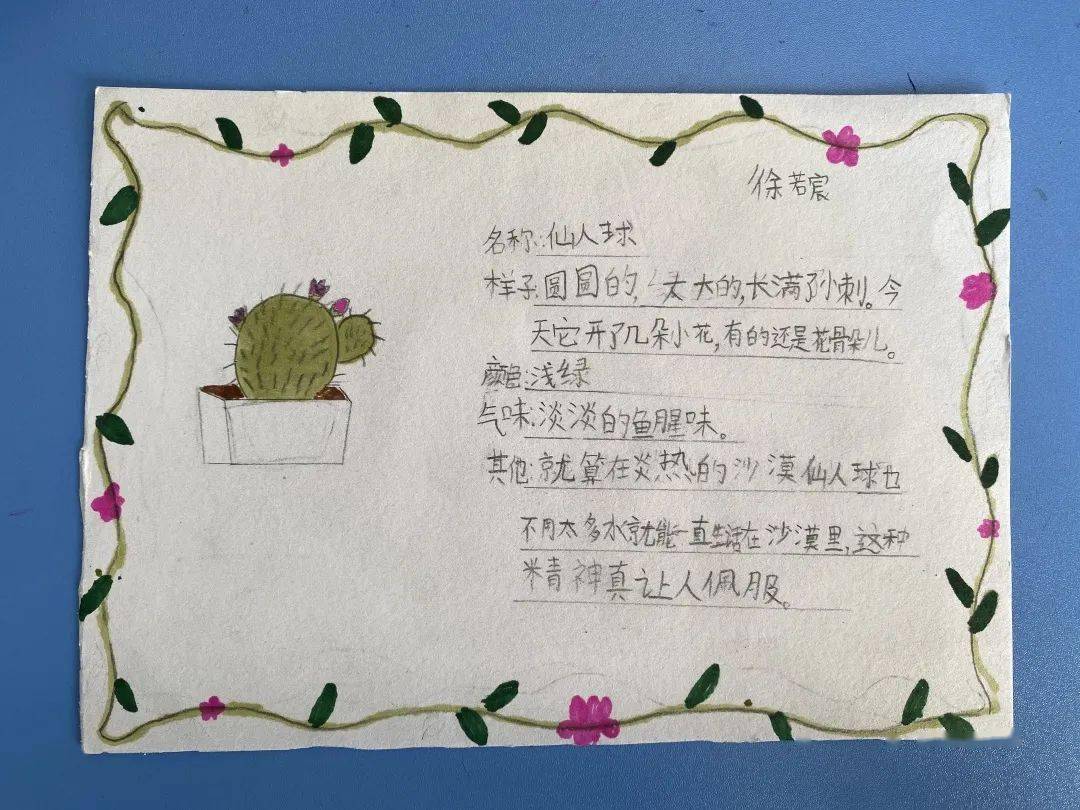 徐若宸
名称:仙人球
样子:圆圆的,大大的,长满了小刺。今
天它开了几朵小花,有的还是花骨朵儿。
颜色:浅绿
气味:淡淡的鱼腥味。
其他:就算在炎热的沙漠仙人球也
不用太多水就能一直生活在沙漠里,这种
精神真让人佩服。